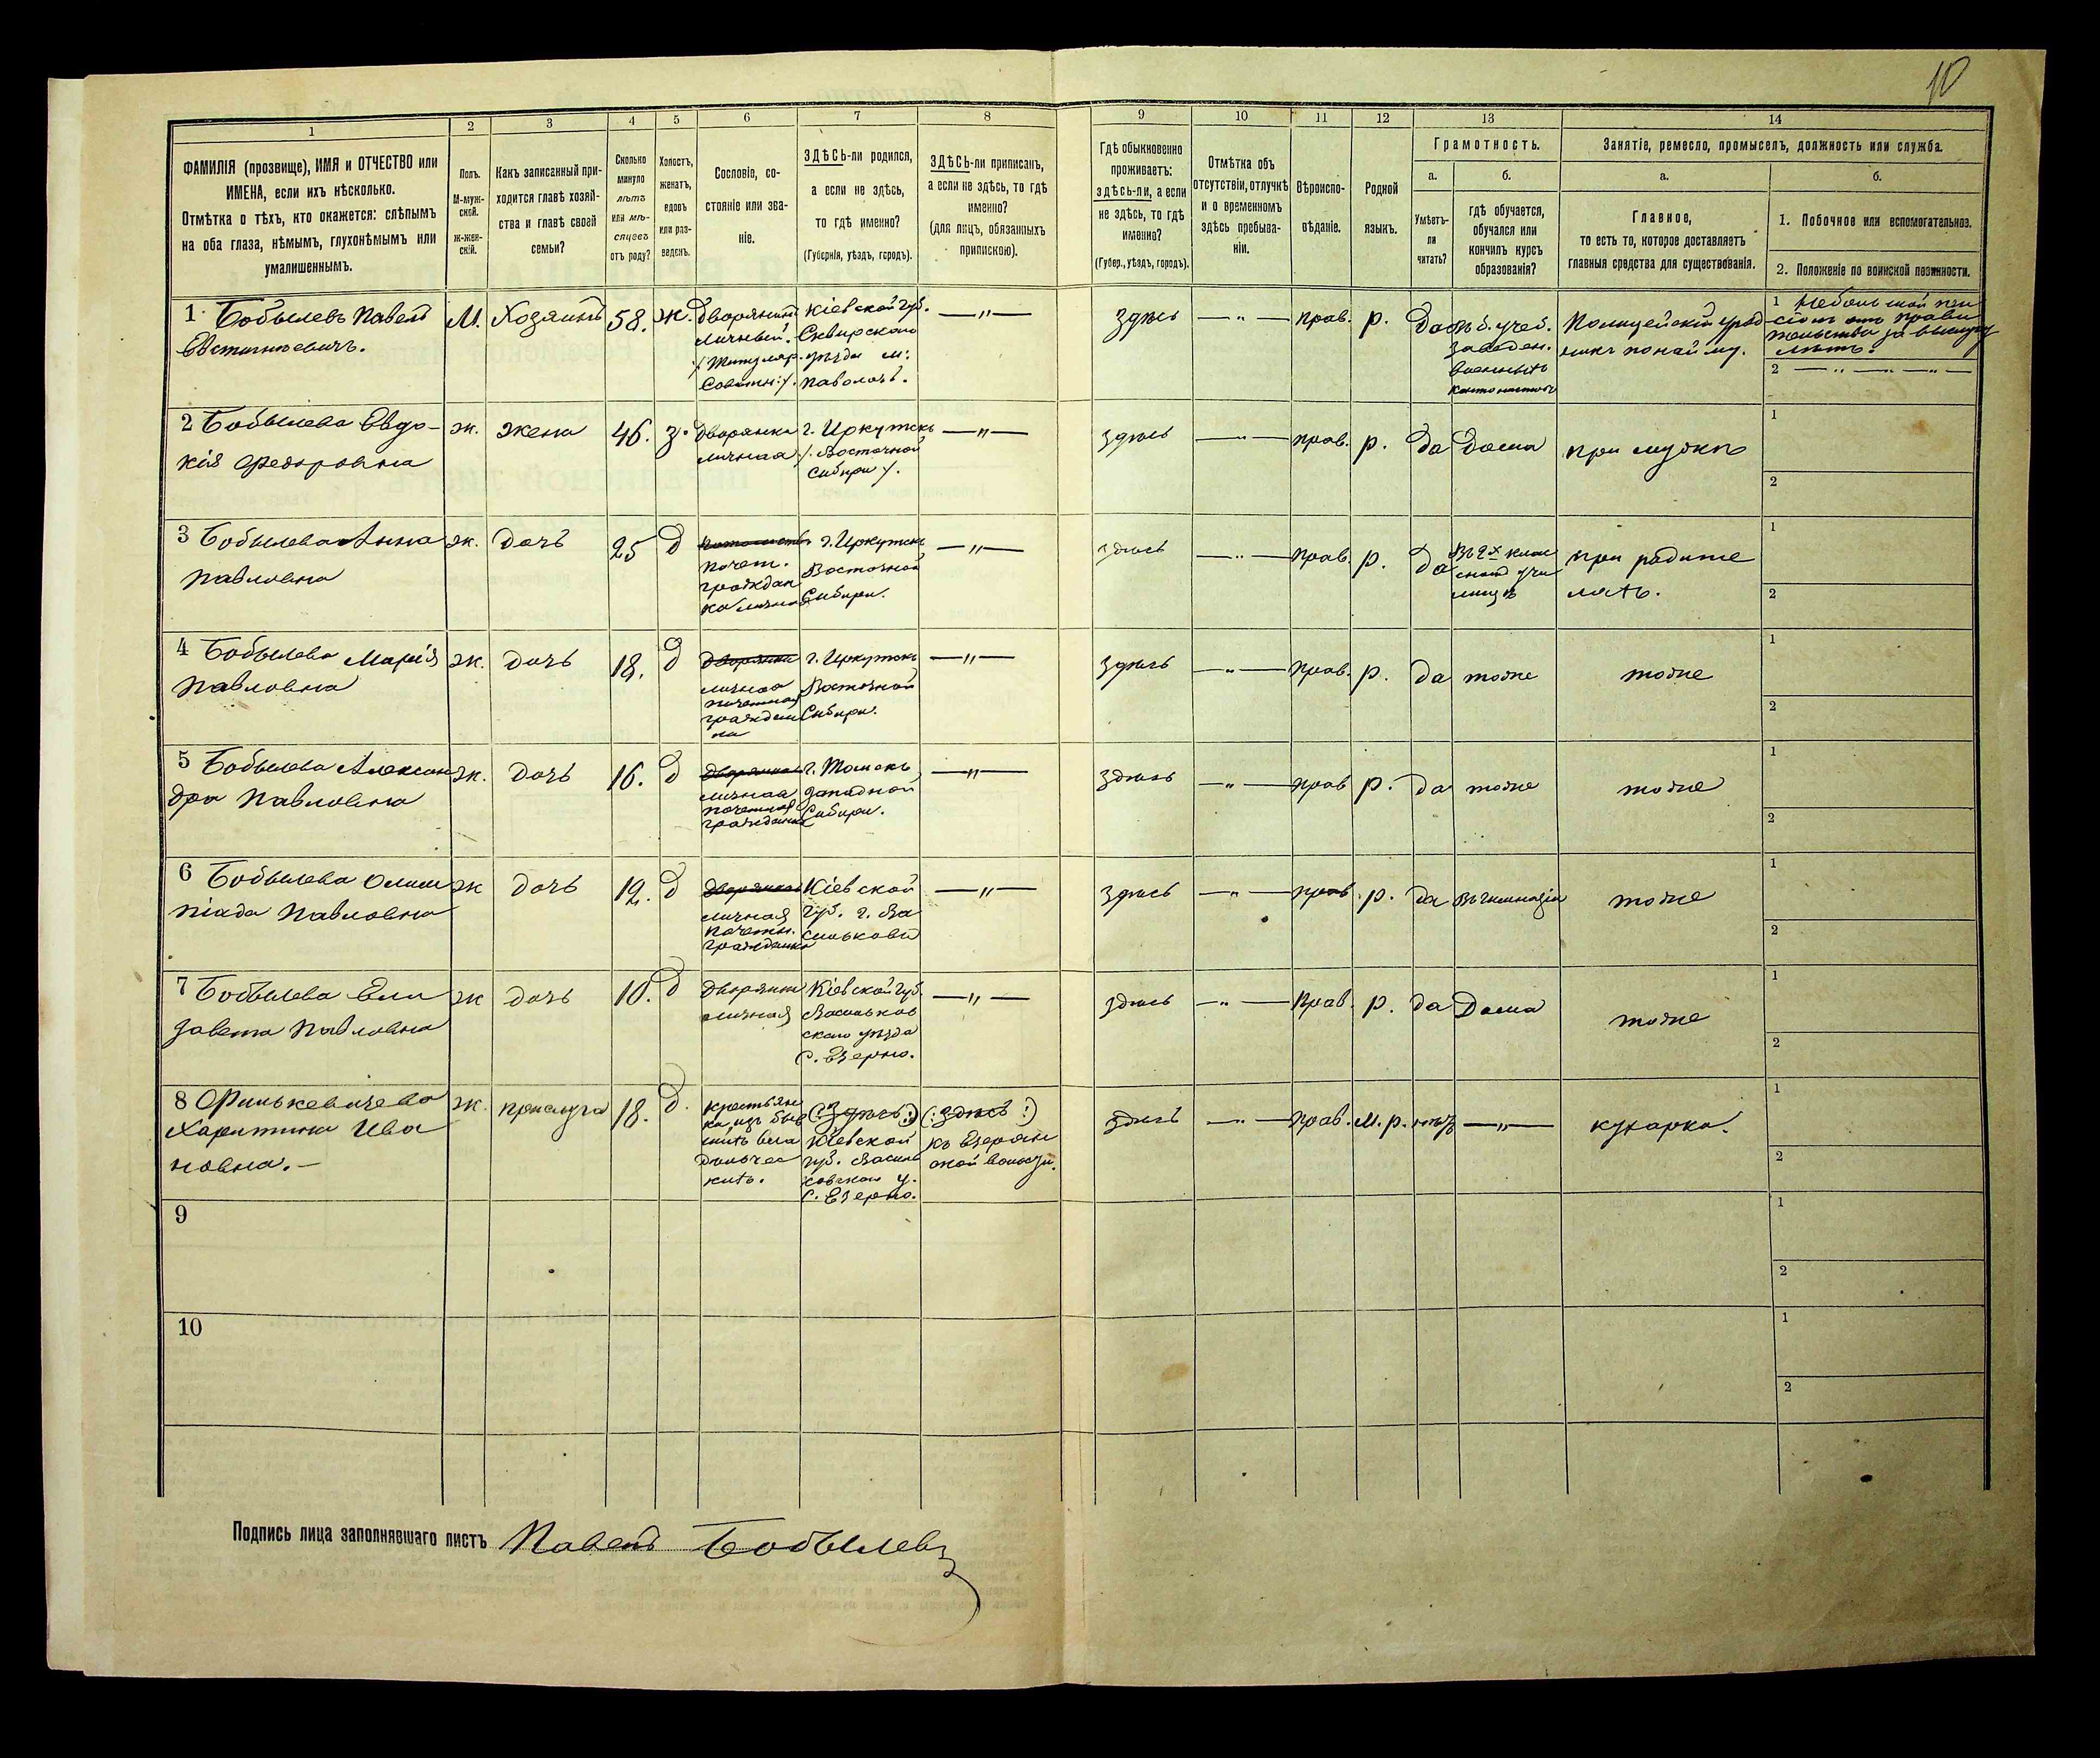 10
1
2
3
4
5
6
7
8
9
10
11
12
13
14
ФАМИЛІЯ (прозвище), ИМЯ и ОТЧЕСТВО или
ИМЕНА, если ихъ нѣсколько.
Отмѣтка о тѣхъ, кто окажется: слѣпымъ
на оба глаза, нѣмымъ, глухонѣмымъ или
умалишеннымъ.
Полъ.
М-муж-
ской.
Ж-жен-
скій.
Какъ записанный при-
ходится главѣ хозяй-
ства и главѣ своей
семьи?
Сколько
минуло
лѣтъ
или мѣ-
сяцевъ
отъ роду?
Холостъ,
женатъ,
вдовъ
или раз-
веденъ.
Сословіе, со-
стояніе или зва-
ніе.
ЗДѢСЬ-ли родился,
а если не здѣсь,
то гдѣ именно?
(Губернія, уѣздъ, городъ).
ЗДѢСЬ-ли приписанъ,
а если не здѣсь, то гдѣ
именно?
(для лицъ, обязанныхъ
припискою).
Гдѣ обыкновенно
проживаетъ:
здѣсь-ли, а если
не здѣсь, то гдѣ
именно?
(Губер., уѣздъ, городъ).
Отмѣтка объ
отсутствіи, отлучкѣ
и о временномъ
здѣсь пребыва-
ніи.
Вѣроиспо-
вѣданіе.
Родной
языкъ.
Грамотность.
а.
Умѣетъ-
ли
читать?
б.
гдѣ обучается,
обучался или
кончилъ курсъ
образованія?
Занятіе, ремесло, промыселъ, должность или служба.
а.
Главное,
то есть то, которое доставляетъ
главныя средства для существованія.
б.
1. Побочное или вспомогательное.
2. Положеніе по воинской повинности.
1 Бобылевъ Павелъ
Евстигнѣевичъ.
М.
Хозяинъ
58.
ж.
Дворянинъ
личный.
/Титуляр.
Совѣтн:/.
Кіевской губ.
Сквирскаго
уѣзда м.
Паволочь.
— " —
здѣсь
— " —
прав.
р.
да
въ б. учеб.
заведен.
военныхъ
кантонистовъ
Полицейскій уряд
никъ по найму.
1 Небольшой пен
сіонъ отъ прави
тельства за выслугу
лѣтъ.
2 — " — " —
2 Бобылева Евдо-
кія Федоровна
ж.
жена
46.
з.
Дворянка
личная
г. Иркутскъ
/. Восточной
Сибири /.
— " —
здѣсь
— " —
прав.
р.
да
Дома
при мужѣ
1
2
3 Бобылева Анна
Павловна
ж.
дочь
25
д
почет.
граждан
ка личная
г. Иркутскъ
Восточной
Сибири.
— " —
здѣсь
— " —
прав.
р.
да
Въ 2х клас
сномъ учи
лищѣ
при родите
ляхъ.
1
2
4 Бобылева Марія
Павловна
ж.
дочь
18.
д
Дворянка
личная
почетная
граждан
ка
г. Иркутскъ
Восточной
Сибири.
— " —
здѣсь
— " —
прав.
р.
да
тоже
тоже
1
2
5 Бобылева Алексан
дра Павловна
ж.
дочь
16.
д
Дворянка
личная
почетная
гражданка
г. Томскъ
Западной
Сибири.
— " —
здѣсь
— " —
прав
р.
да
тоже
тоже
1
2
6 Бобылева Олим
піада Павловна
ж
дочь
12.
д
Дворянка
личная
почетн.
гражданка
Кіевской
губ. г. Ва
сильковъ
— " —
здѣсь
— " —
прав.
р.
да
въ гимназіи
тоже
1
2
7 Бобылева Ели
завета Павловна
ж
дочь
10.
д
Дворянка
личная
Кіевской губ.
Васильков
скаго уѣзда
с. Езерно.
— " —
здѣсь
— " —
прав.
р.
да
Дома
тоже
1
2
8 Финькевичева
Харитина Ива
новна. —
ж.
прислуга
18.
д.
крестьян
ка, изъ быв
шихъ вла
дѣльчес
кихъ.
(: здѣсь :)
Кіевской
губ. Василь
ковскаго у.
с. Езерно.
(: здѣсь :)
къ Езерян
ской волости.
здѣсь
— " —
прав.
м. р.
нѣтъ
— " —
кухарка.
1
2
9
1
2
10
1
2
Подпись лица заполнявшаго листъ Павелъ Бобылевъ